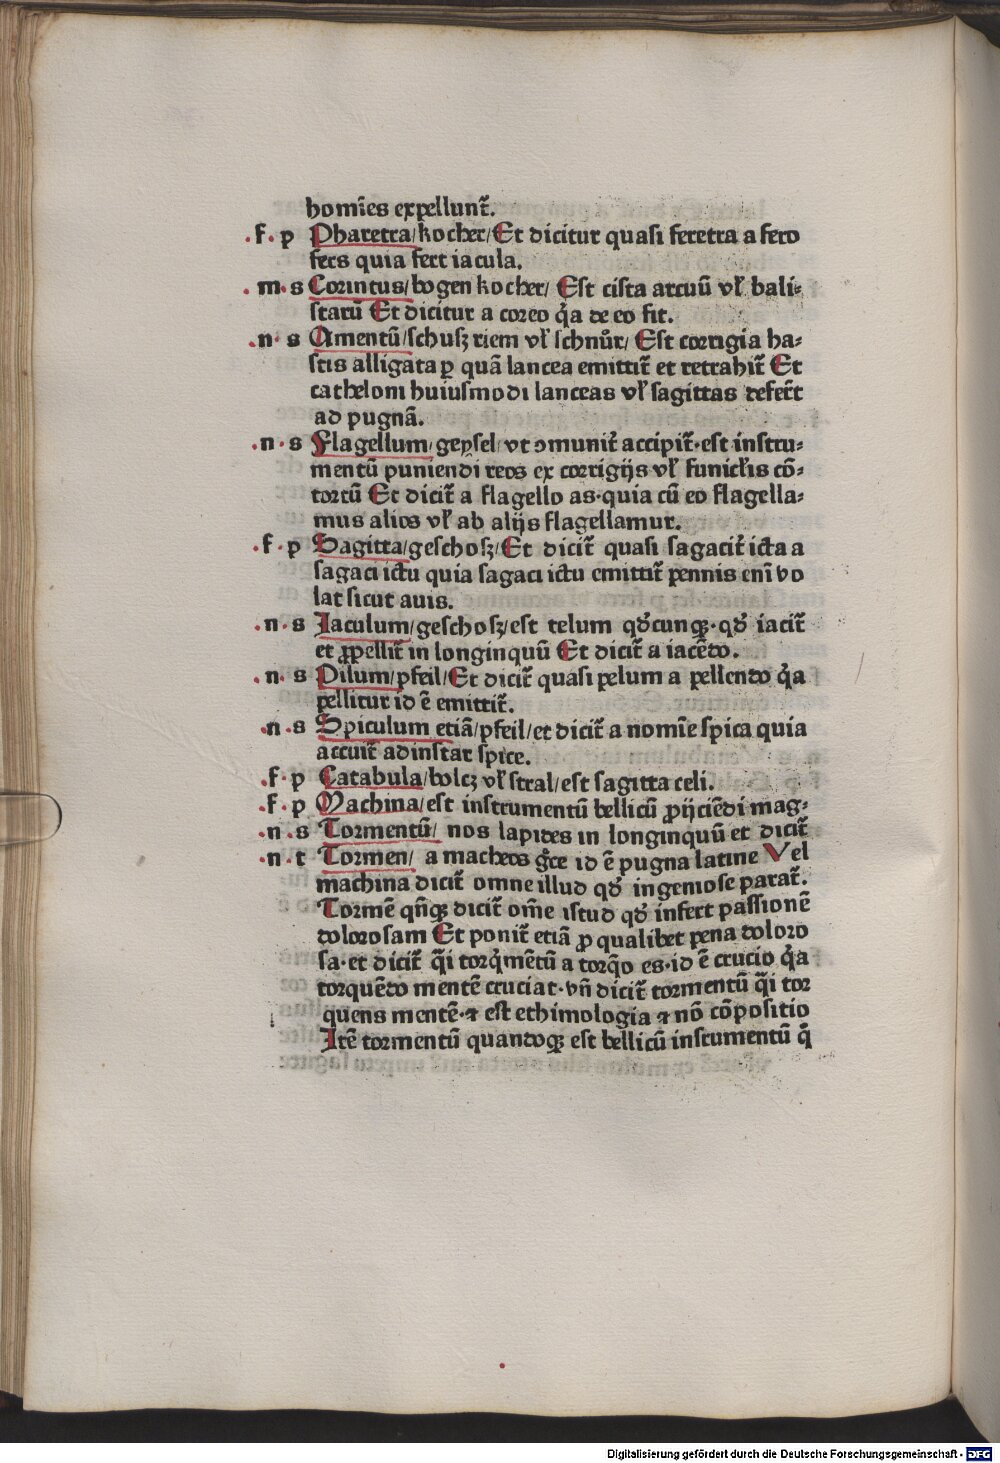 homīes expellunt̄.
.f.p Pharetra/kocher/Et dicitur quasi feretra a fero
fers quia fert iacula.
.m.s Corintus/bogen kocher/ Est cista arcuū vl̄ bali⸗
starū Et dicitur a coreo q̄a de eo fit.
.n.s Amentū/schusz riem vl̄ schnůr/ Est corrigia ha⸗
stis alligata ꝑ quā lancea emittit̄ et retrahit̄ Et
catheloni huiusmodi lanceas vl̄ sagittas defer̄t
ad pugnā.
.n.s Flagellum/geysel/vt ɔmunit̄ accipit̄.est instru⸗
mentū puniendi reos ex corrigijs vl̄ funicl̄is cō⸗
tortū Et dicit̄ a flagello as.quia cū eo flagella⸗
mus alios vl̄ ab alijs flagellamur.
.f.p Sagitta/geschosz/Et dicit̄ quasi sagacit̄ icta a
sagaci ictu quia sagaci ictu emittit̄ pennis enī vo
lat sicut auis.
.n.s Iaculum/geschosz/est telum qd̄cunqꝫ.qd̄ iacit̄
et ꝓpellit̄ in longinquū Et dicit̄ a iacēdo.
.n.s Pilum/pfeil/Et dicit̄ quasi pelum a pellendo q̄a
pellitur id ē emittit̄.
.n.s Spiculum etiā/pfeil/et dicit̄ a nomīe spica quia
accuit̄ ad instar spice.
.f.p Catabula/bolcz vl̄ stral/est sagitta celi.
.f.p Machina/est instrumentū bellicū ꝓijciēdi mag⸗
.n.s Tormentū/ nos lapides in longinquū et dicit̄
.n.t Tormen/ a macheos gr̄ce id ē pugna latine Vel
machina dicit̄ omne illud qd̄ ingeniose parat̄.
Tormē qn̄qꝫ dicit̄ om̄e istud qd̄ infert passionē
dolorosam Et ponit̄ etiā ꝓ qualibet pena doloro
sa.et dicit̄ q̄i torq̄mētū a torq̄o es.id ē crucio q̄a
torquēdo mentē cruciat.vn̄ dicit̄ tormentū q̄i tor
quens mentē.⁊ est ethimologia ⁊ nō cōpositio
Itē tormentū quandoqꝫ est bellicū instumentū q̄
Digitalisierung gefördert durch die Deutsche Forschungsgemeinschaft - DFG